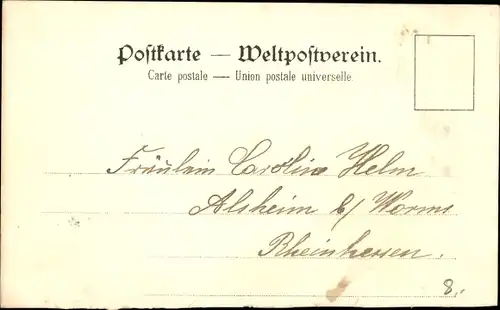 Postkarte — Weltpostverein.
Carte postale — Union postale universelle.
Fräulein Caroline Helm
Alsheim b/ Worms
Rheinhessen.
8.-